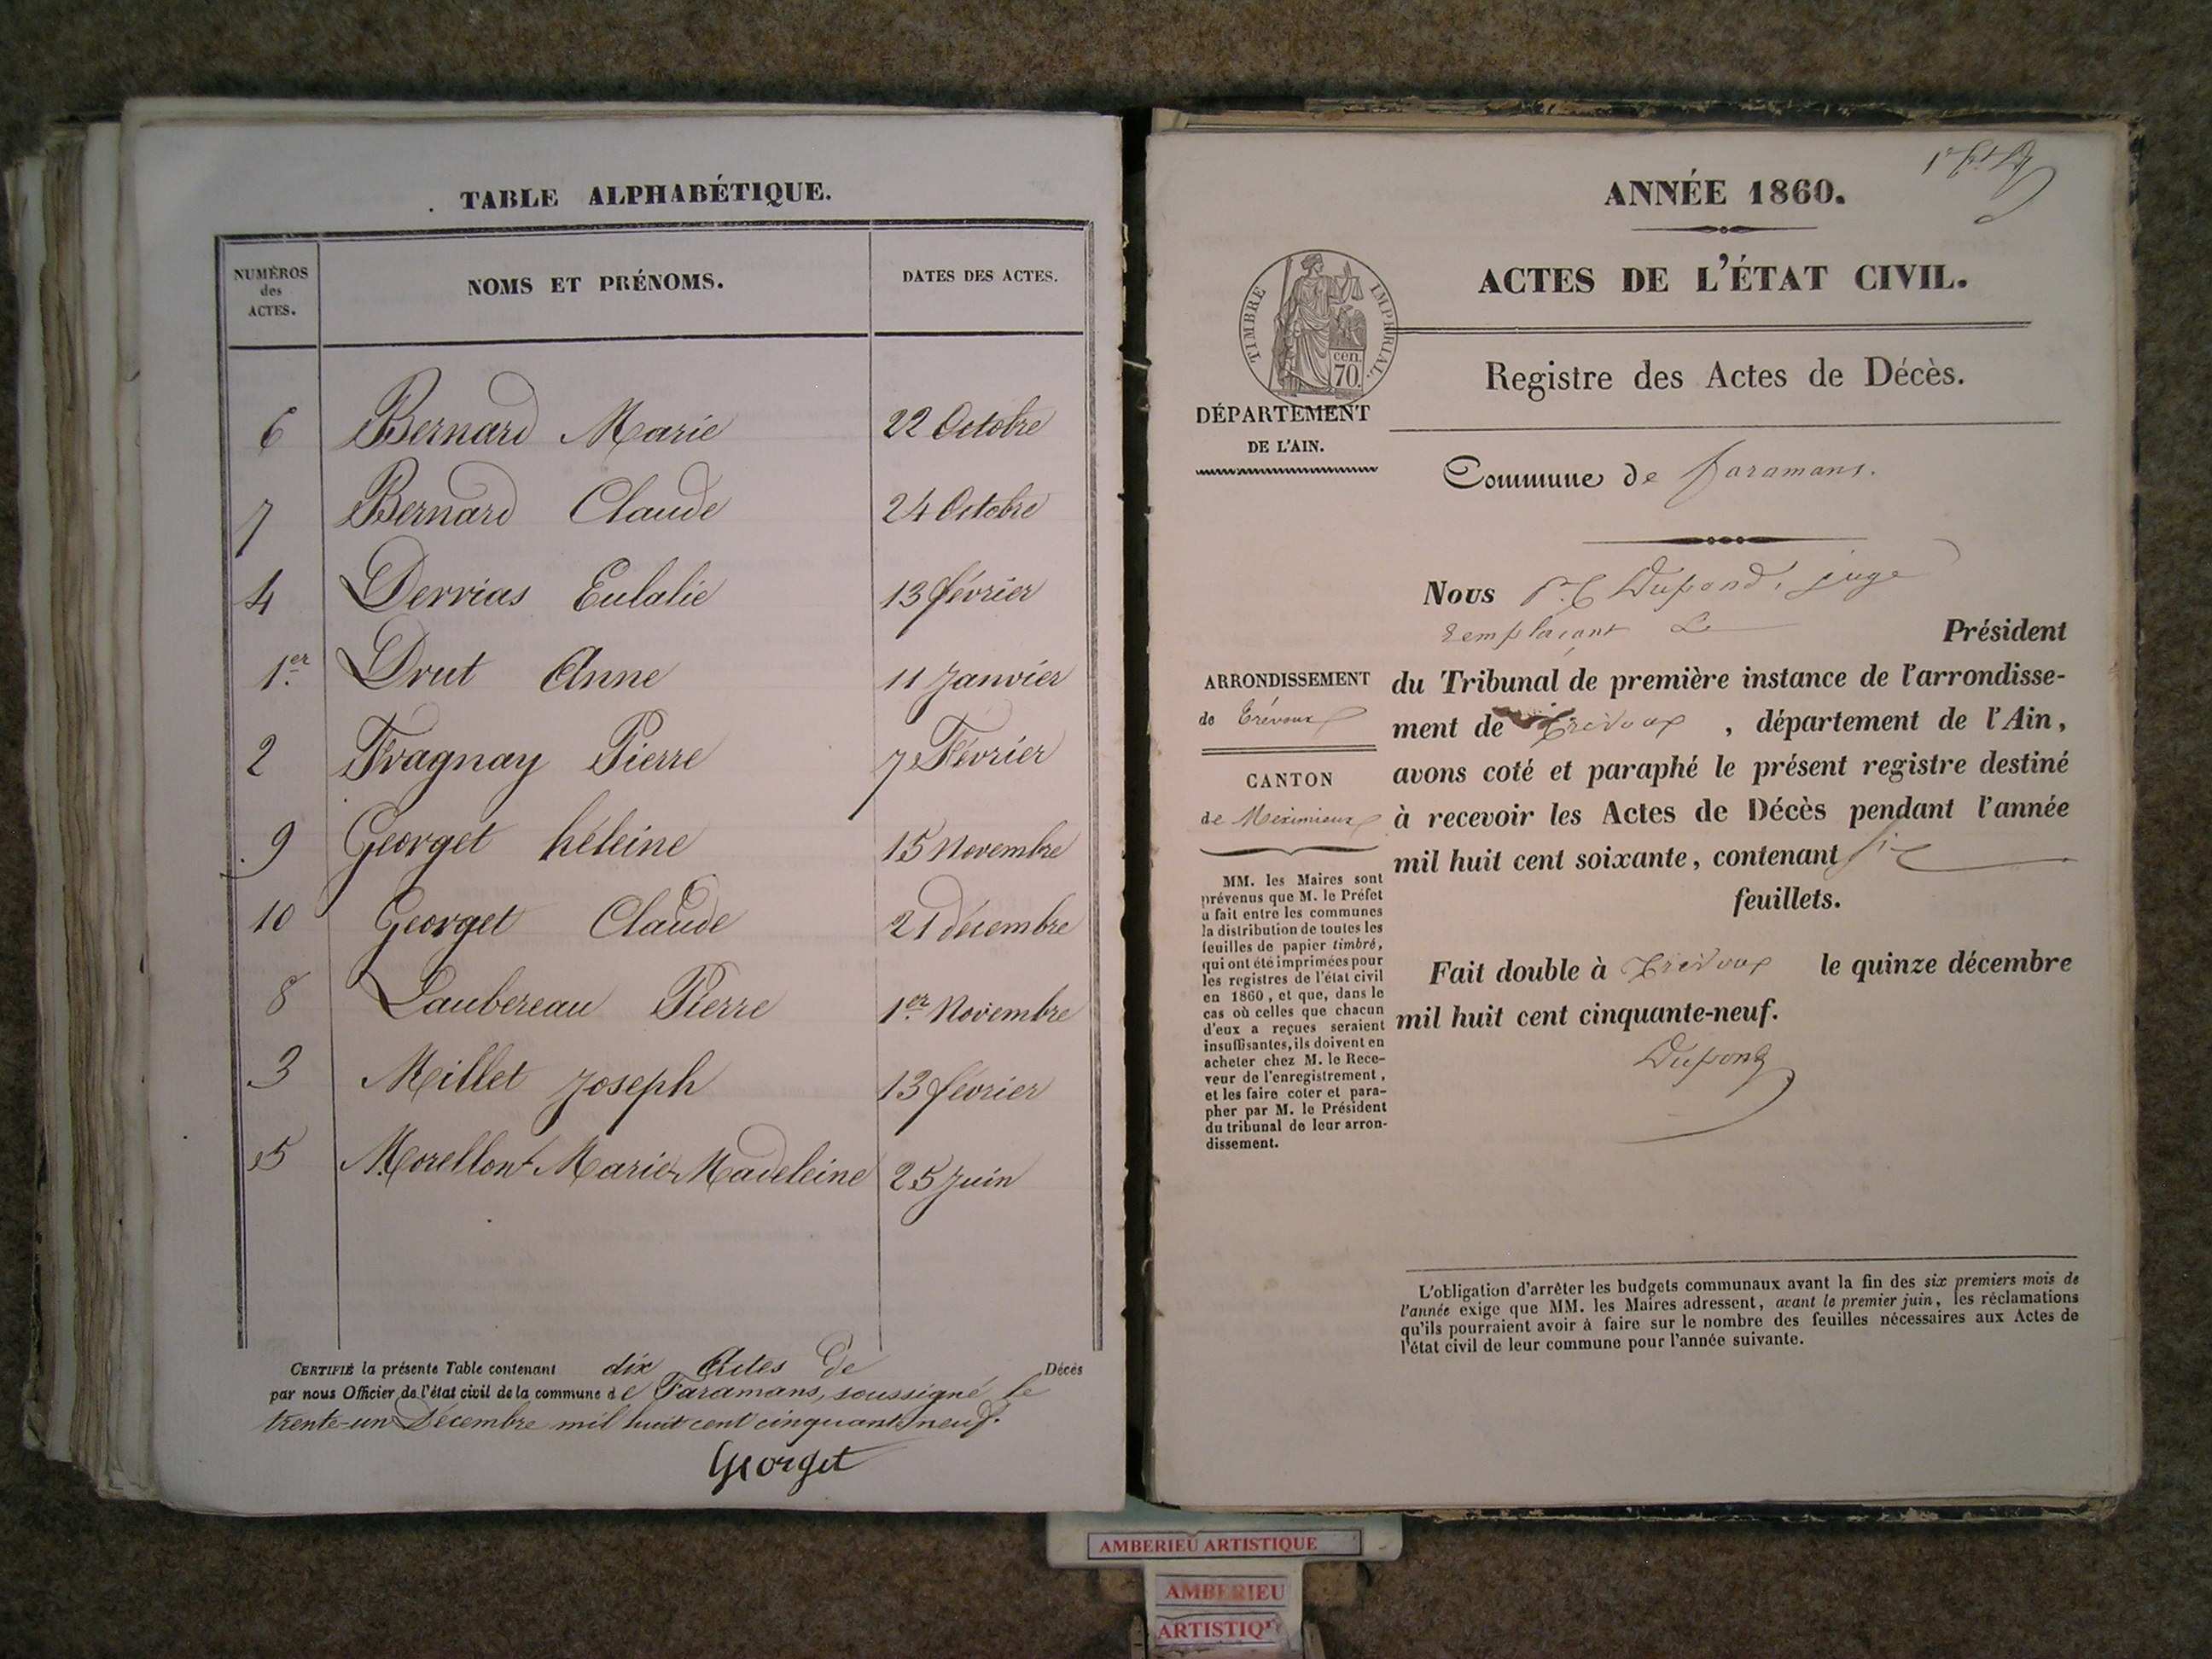 TABLE ALPHABÉTIQUE.
NUMÉROS
des
ACTES.
NOMS ET PRÉNOMS.
DATES DES ACTES.
6 Bernard Marie 22 Octobre
7 Bernard Claude 24 Octobre
4 Dervias Eulalie 13 février
1er Drut Anne 11 Janvier
2 Fragnay Pierre 7 Février
9 Georget héleine 15 Novembre
10 Georget Claude 21 décembre
8 Laubereau Pierre 1er Novembre
3 Millet Joseph 13 février
5 Morellont Marie Madeleine 25 Juin
CERTIFIÉ la présente Table contenant dix Actes de Décès
par nous Officier de l'état civil de la commune de Faramans, soussigné le
trente-un Décembre mil huit cent cinquante neuf.
Georget
ANNÉE 1860.
ACTES DE L'ÉTAT CIVIL.
TIMBRE IMPERIAL.
cen.
70.
Registre des Actes de Décès.
DÉPARTEMENT
DE L'AIN.
Commune de faramans.
Nous Dupond, juge
remplaçant Le Président
du Tribunal de première instance de l'arrondisse-
ment de Trévoux, département de l'Ain,
avons coté et paraphé le présent registre destiné
à recevoir les Actes de Décès pendant l'année
mil huit cent soixante, contenant
feuillets.
Fait double à Trévoux le quinze décembre
mil huit cent cinquante-neuf.
Dupond
ARRONDISSEMENT
de Trévoux
CANTON
de Meximieux
MM. les Maires sont
prévenus que M. le Préfet
a fait entre les communes
la distribution de toutes les
feuilles de papier timbré,
qui ont été imprimées pour
les registres de l'état civil
en 1860, et que, dans le
cas où celles que chacun
d'eux a reçues seraient
insuffisantes, ils doivent en
acheter chez M. le Rece-
veur de l'enregistrement,
et les faire coter et para-
pher par M. le Président
du tribunal de leur arron-
dissement.
L'obligation d'arrêter les budgets communaux avant la fin des six premiers mois de
l'année exige que MM. les Maires adressent, avant le premier juin, les réclamations
qu'ils pourraient avoir à faire sur le nombre des feuilles nécessaires aux Actes de
l'état civil de leur commune pour l'année suivante.
AMBERIEU ARTISTIQUE
AMBERIEU
ARTISTIQU